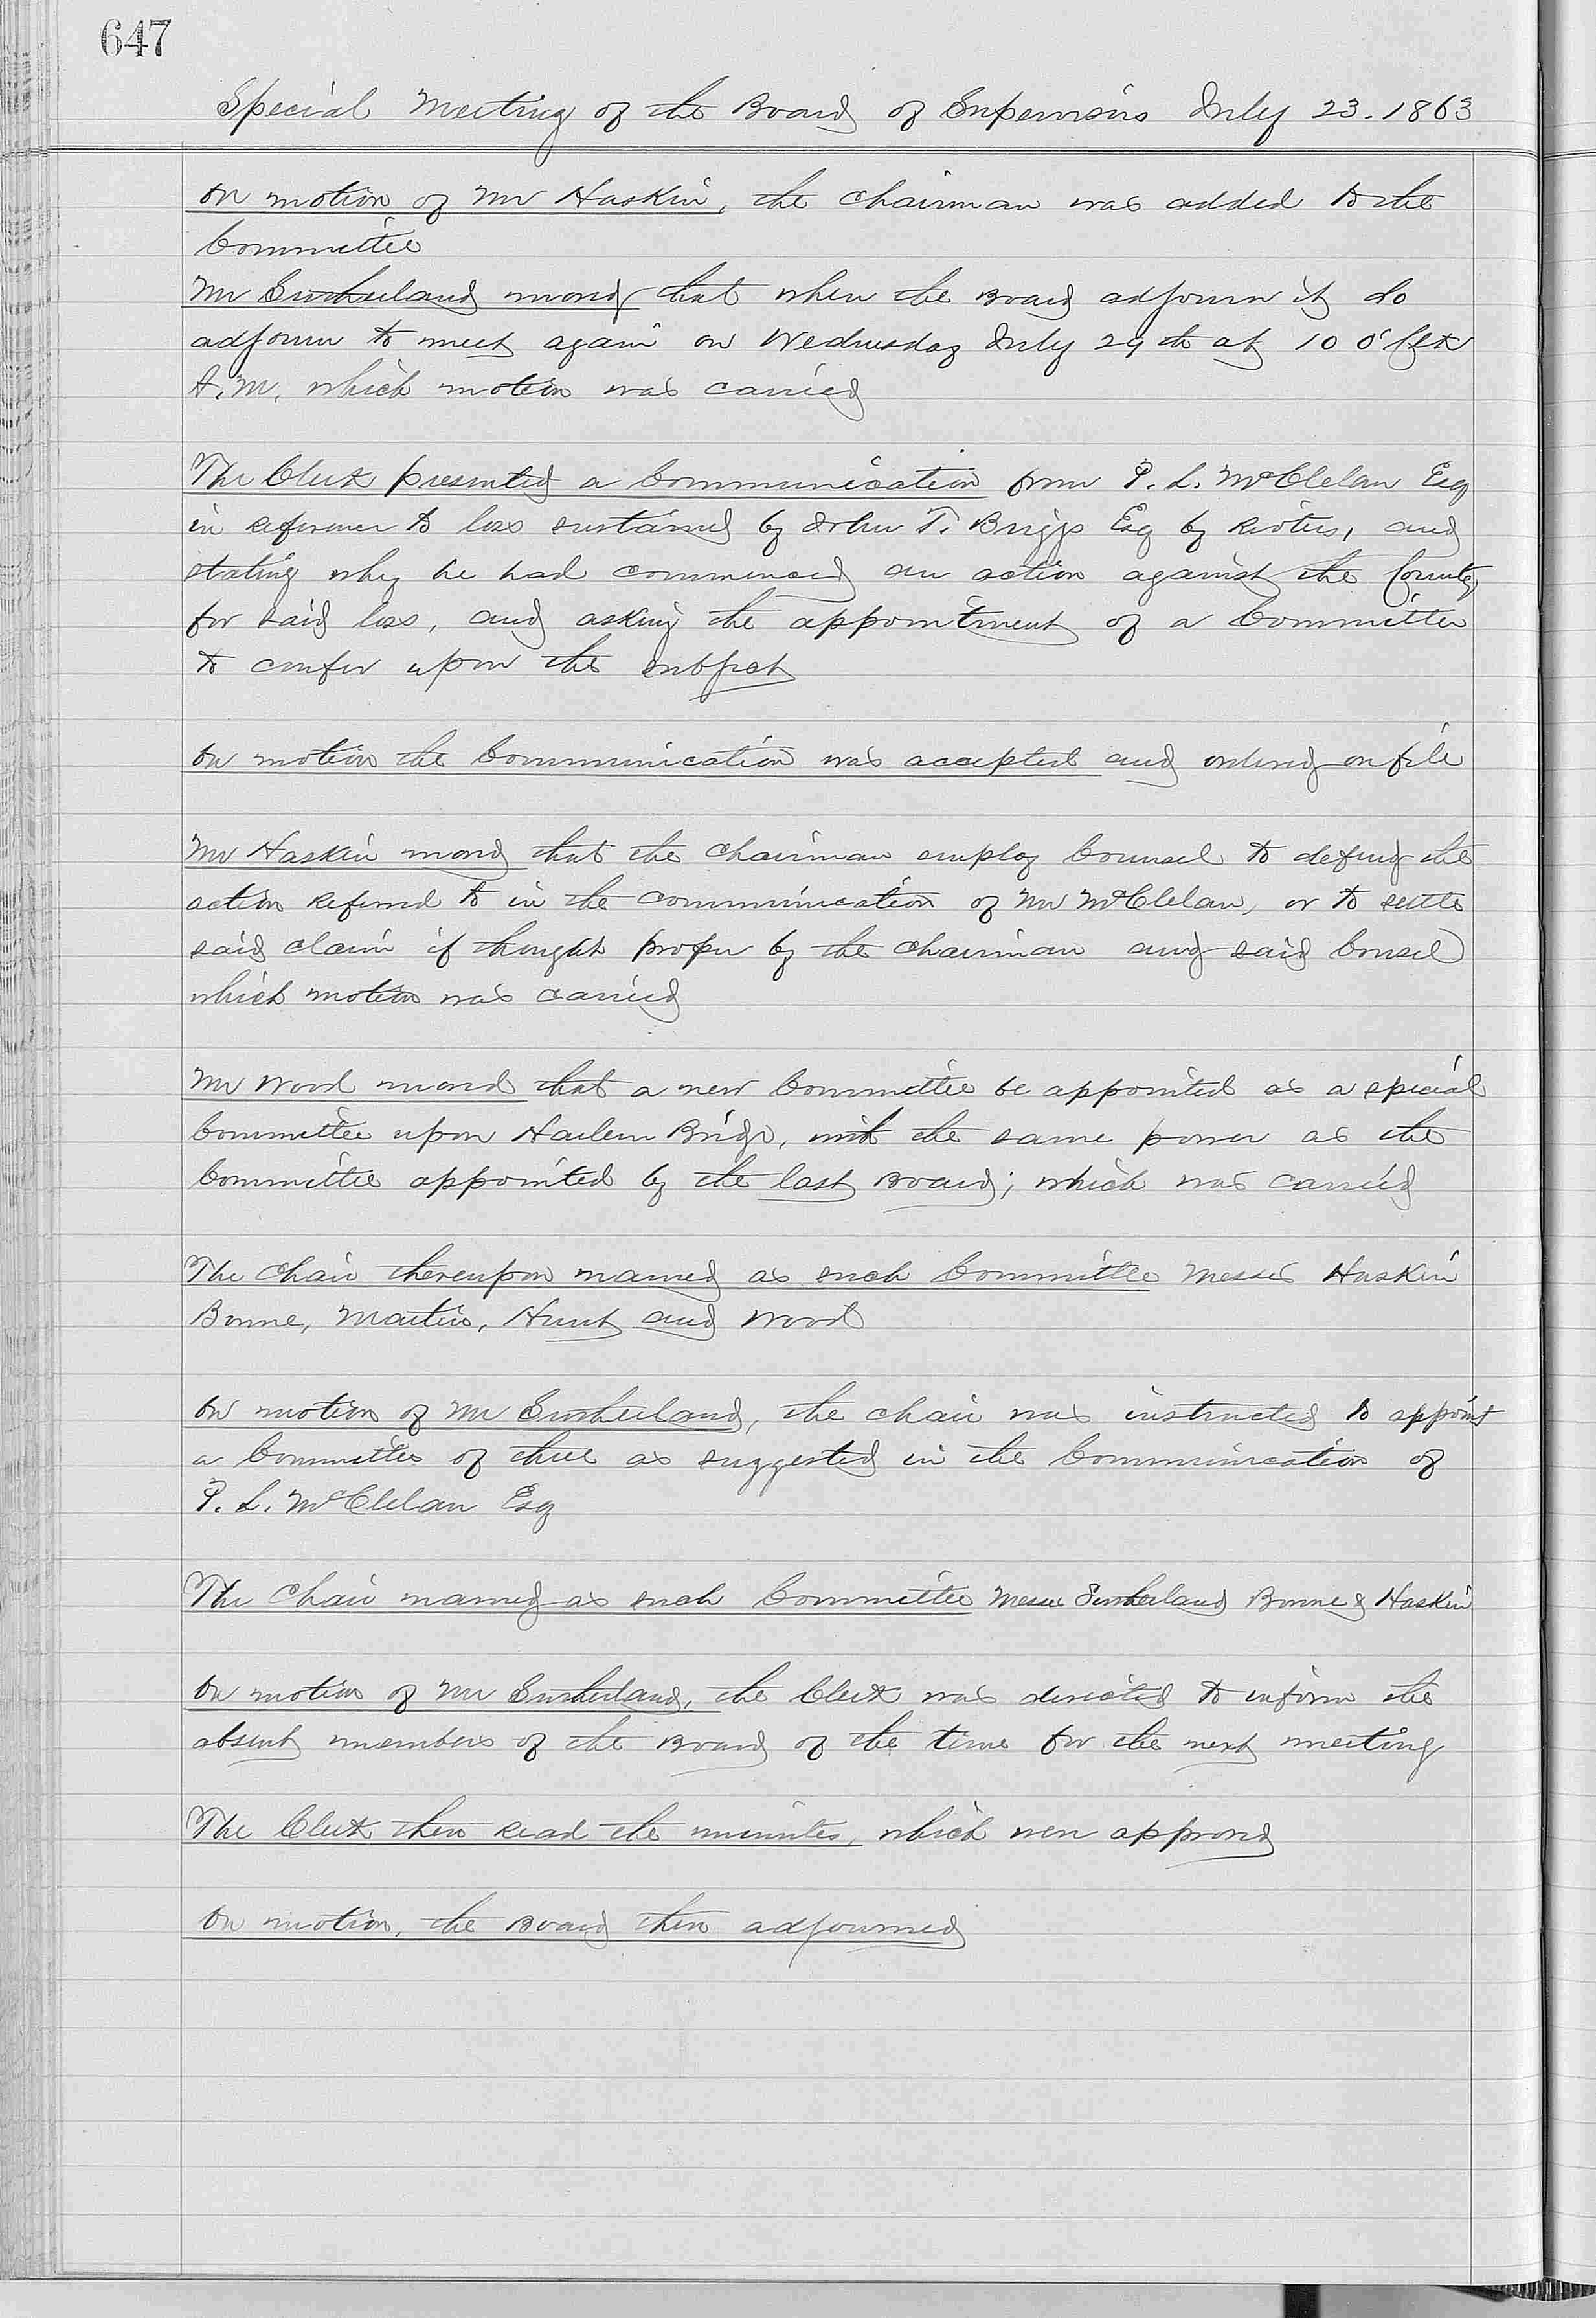 647
Special Meeting of the Board of Supervisors July 23. 1863
On motion of Mr Haskin, the Chairman was added to the
Committee
Mr Sutherland moved that when the Board adjourn it do
adjourn to meet again on Wednesday July 29th at 10 O'Clk
A.M, which motion was carried
The Clerk presented a Communication from P. L. McClelan Esq
in reference to loss sustained by John T. Briggs Esq by Rioters, and
stating why he had commenced an action against the County
for said loss, and asking the appointment of a Committee
to confer upon the subject
On motion the Communication was accepted and ordered on file
Mr Haskin moved that the Chairman employ Counsel to defend the
action referred to in the communication of Mr McClelan, or to settle
said claim if thought proper by the Chairman and said Counsel
which motion was carried
Mr Wood moved that a new Committee be appointed as a special
Committee upon Harlem Bridge, with the same power as the
Committee appointed by the last Board; which was carried
The Chair thereupon named as such Committee Messrs Haskin
Bonne, Martin, Hunt and Wood
On motion of Mr Sutherland, the chair was instructed to appoint
a Committee of three as suggested in the Communication of
P. L. McClelan Esq
The Chair named as such Committee Messrs Sutherland Bonne & Haskin
On motion of Mr Sutherland, the Clerk was directed to inform the
absent members of the Board of the time for the next meeting
The Clerk then read the minutes, which were approved
On motion, the Board then adjourned